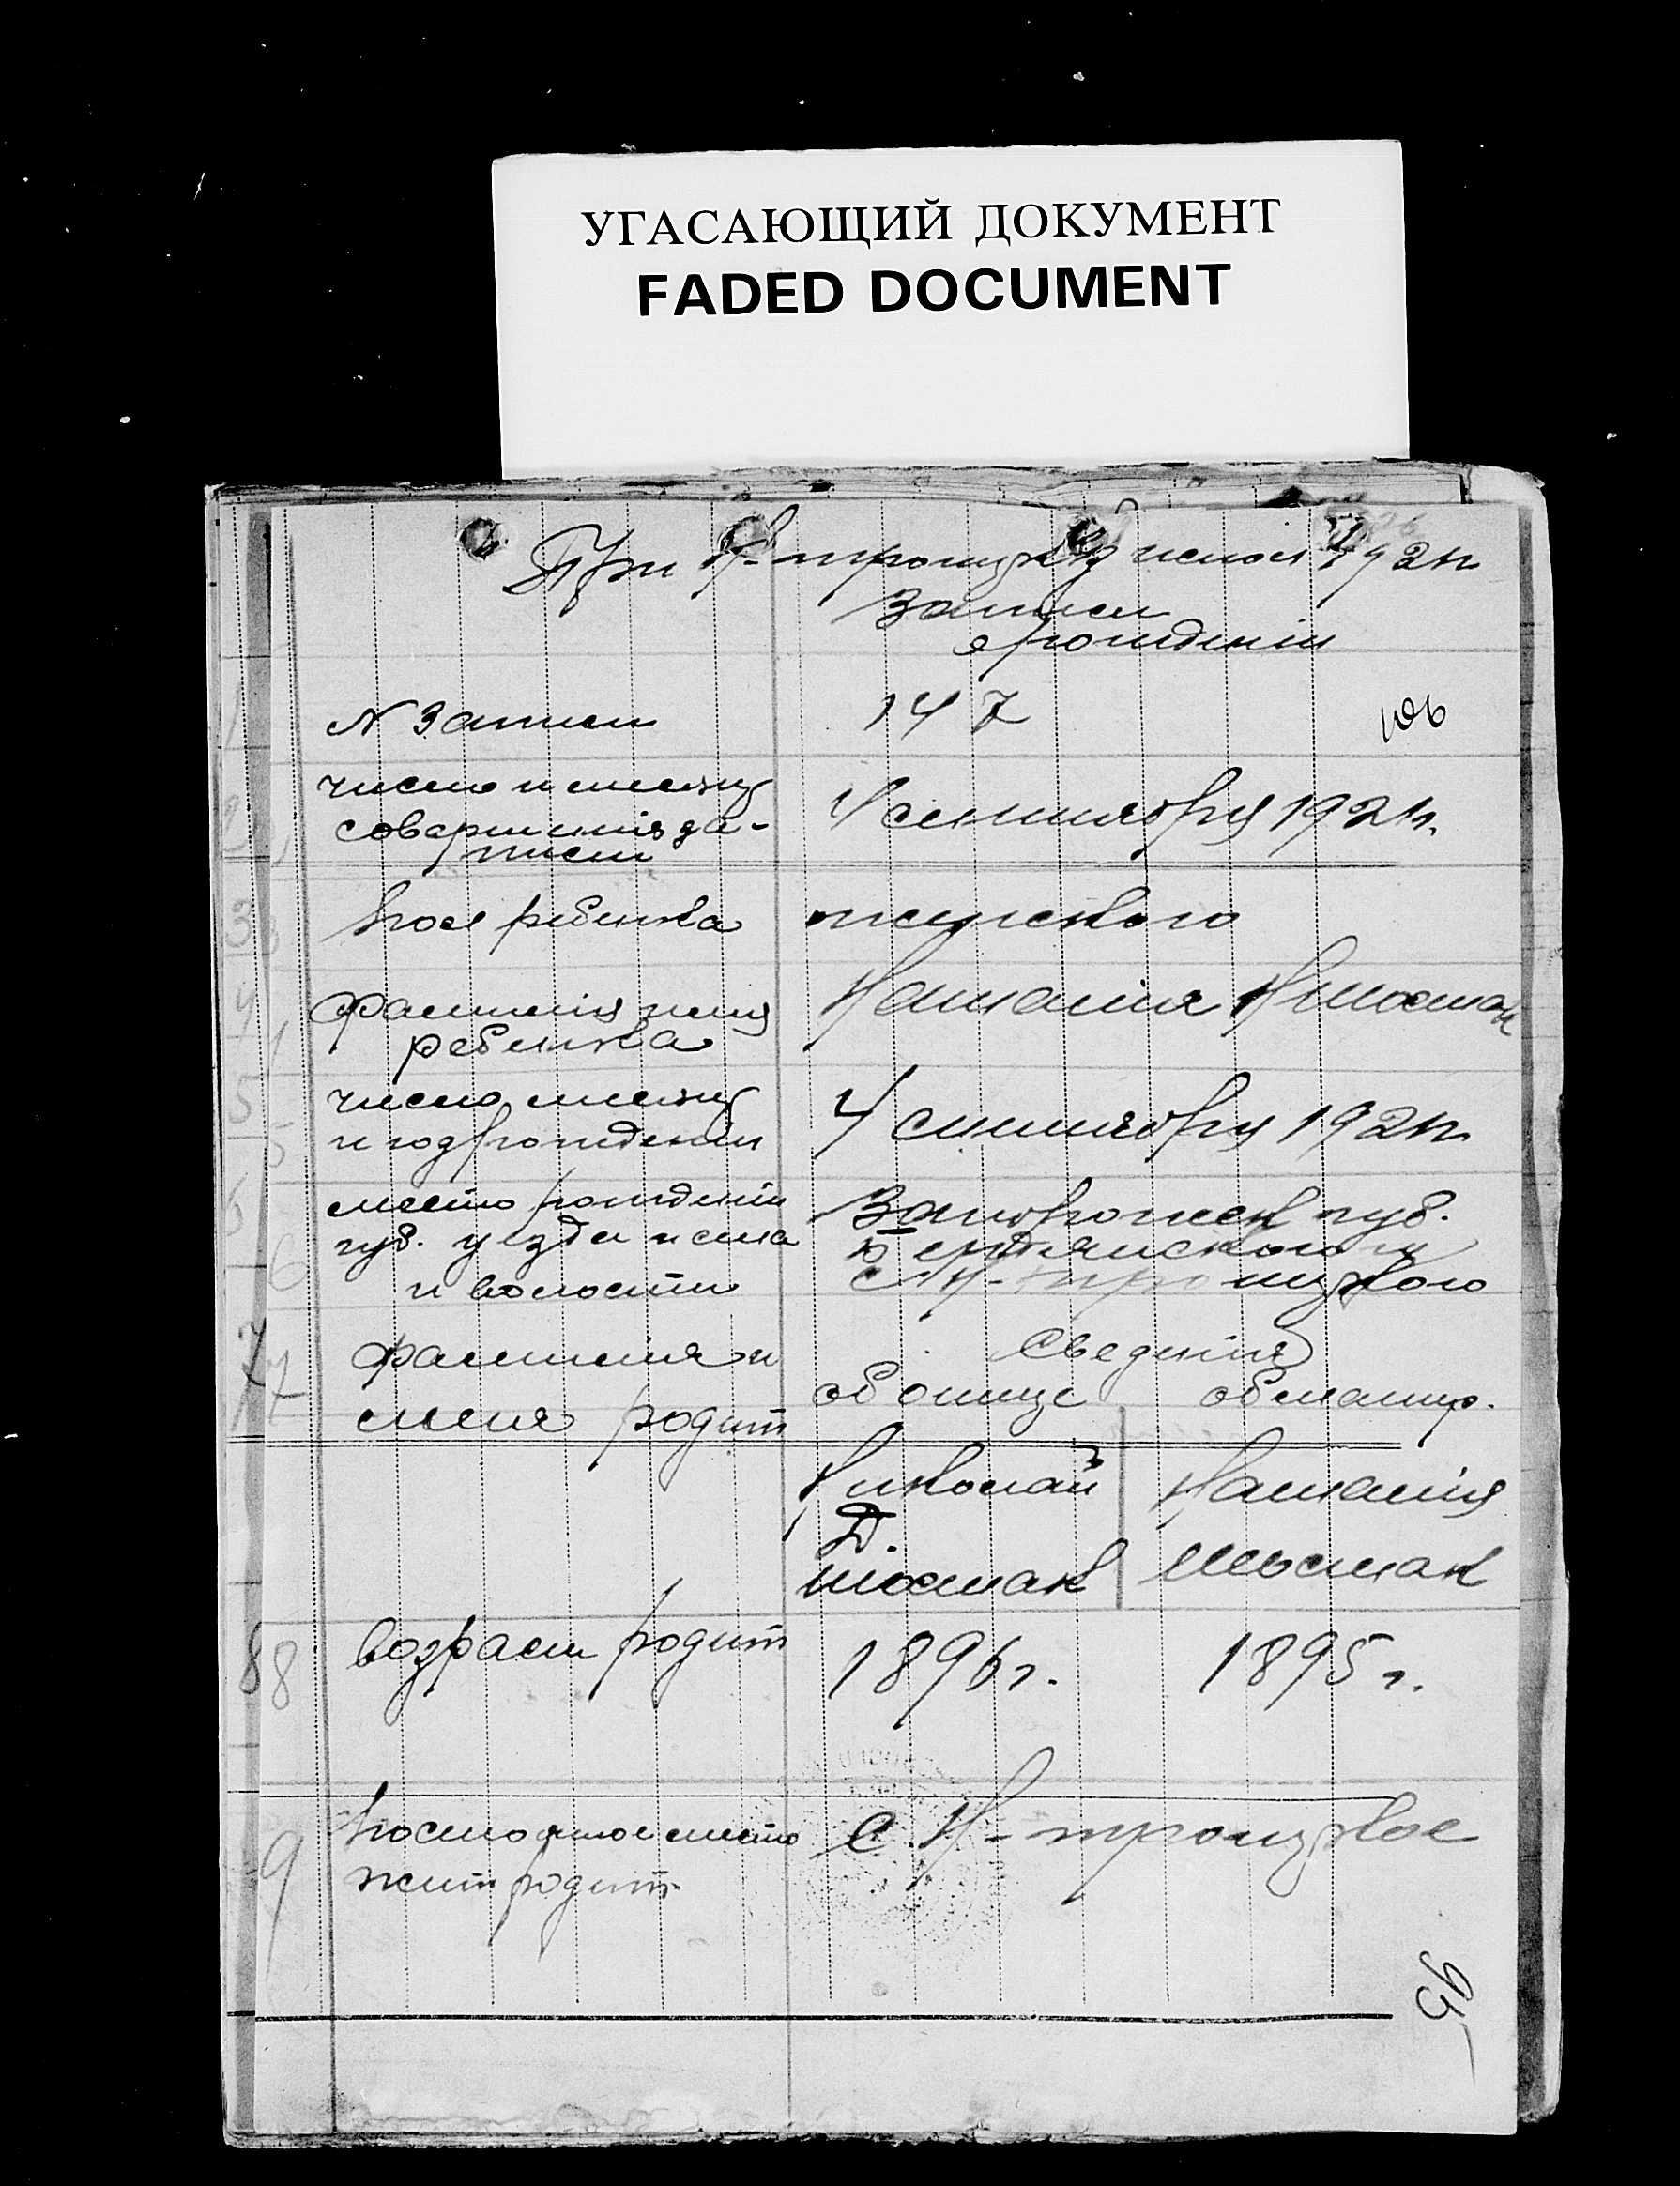 УГАСАЮЩИЙ ДОКУМЕНТ
FADED DOCUMENT
При Н-троицк
Записи
о рождении
N Записи 147 106
число и месяц
совершения за-
писи
4 сентября 1921г.
пол ребенка женского
Фамилия имя
ребенка
Наталия
число месяц
и год рождении
4 сентября 1921г.
место рождени
губ. уезда и села
и волости
Запорожск губ.
с Н-троицкого
Фамилия и
имя родит
Сведения
об отце об матер.
Николай
Д.
Наталия
8 8 возраст родит 1896г. 1895г.
9 постоянное место
жит родит.
с. Н-троицкое
95